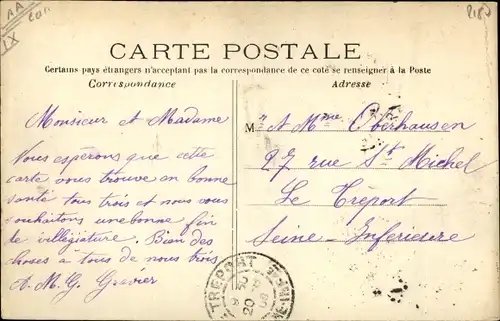 CARTE POSTALE
Certains pays étrangers n'acceptant pas la correspondance de ce coté se renseigner à la Poste
Correspondance
Adresse
Monsieur et Madame
Nous espérons que cette
carte vous trouve en bonne
santé tous trois et nous vous
souhaitons une bonne fin
de villégiature. Bien des
choses a tous de nous trois
A. M. G. Gravier
Mr et Mme Oberhausen
27 rue St Michel
Le Tréport
Seine-Inferieure
TREPORT